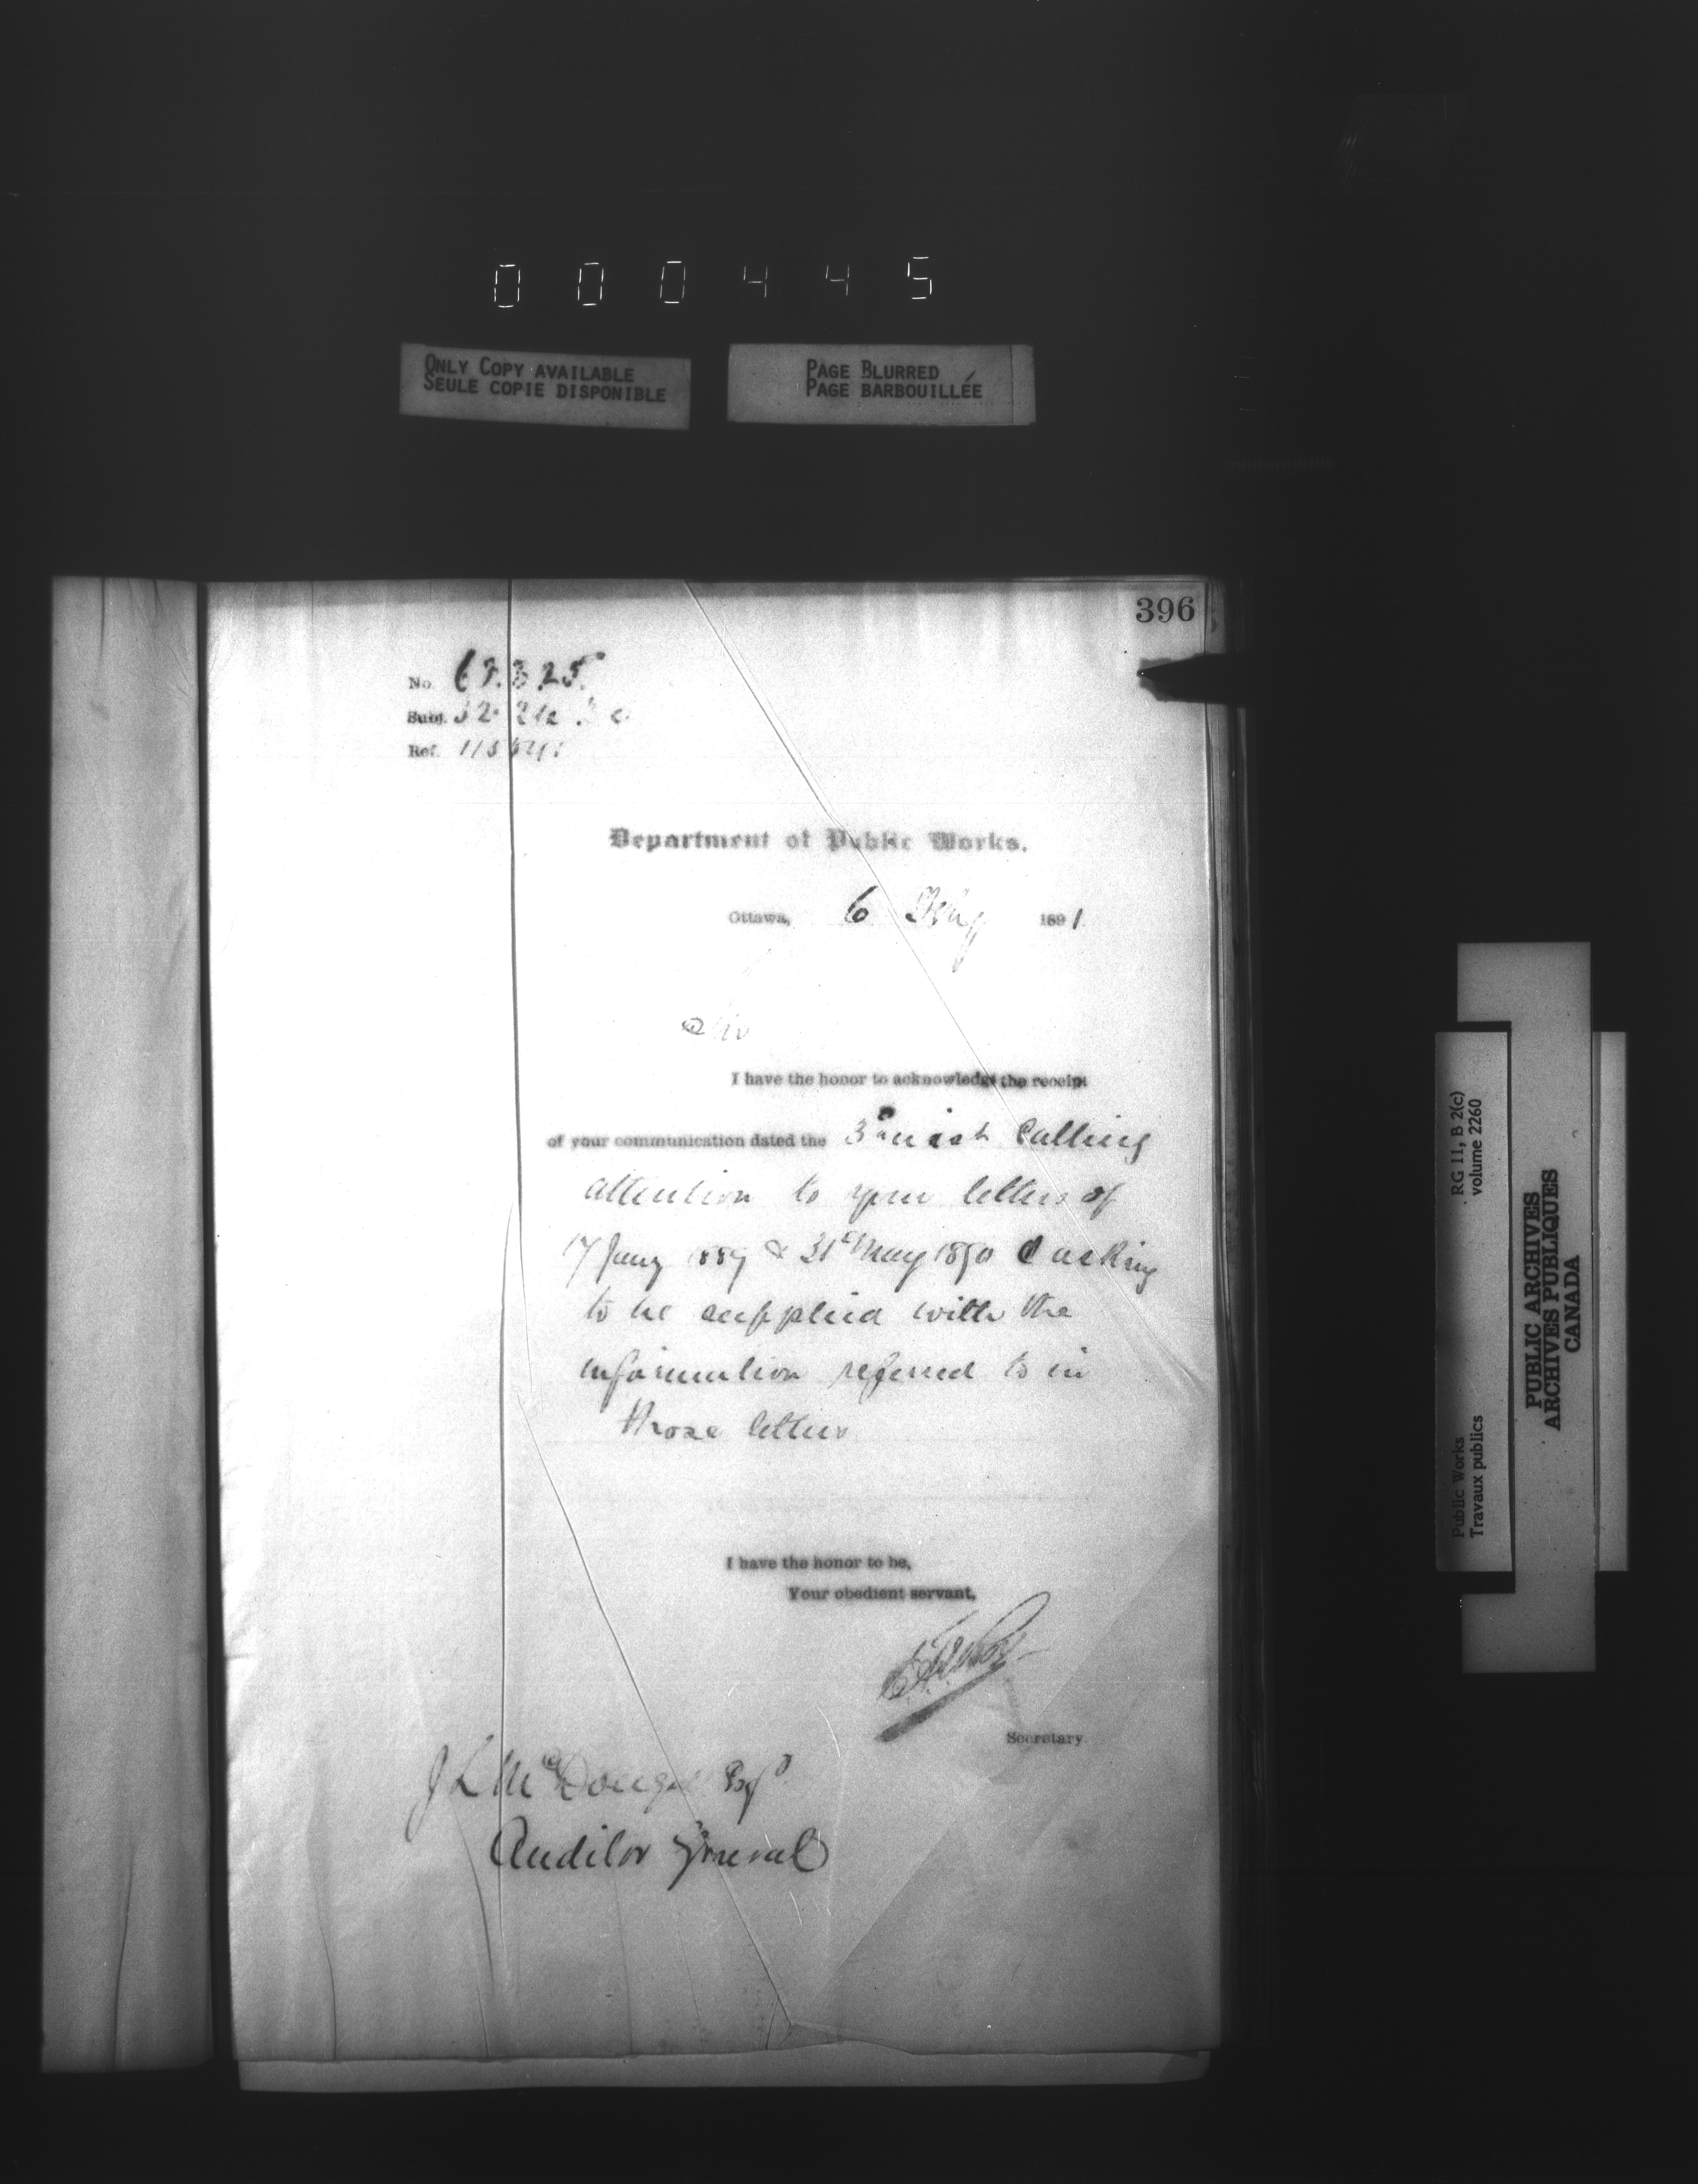 000445
ONLY COPY AVAILABLE
SEULE COPIE DISPONIBLE
PAGE BLURRED
PAGE BARBOUILLÉE
396
No.
Subj.
Ref.
Department of Public Works.
Ottawa, 6 Feby 1891
Sir
I have the honor to acknowledge the receipt
of your communication dated the 3rd inst calling
attention to your letters of
17 Jany 1889 & 31st May 1890 & asking
to be supplied with the
information referred to in
those letters
I have the honor to be,
Your obedient servant,
Secretary.
J L McDougall Esqr
Auditor General
Public Works
Travaux publics
RG 11, B 2(c)
volume 2260
PUBLIC ARCHIVES
ARCHIVES PUBLIQUES
CANADA